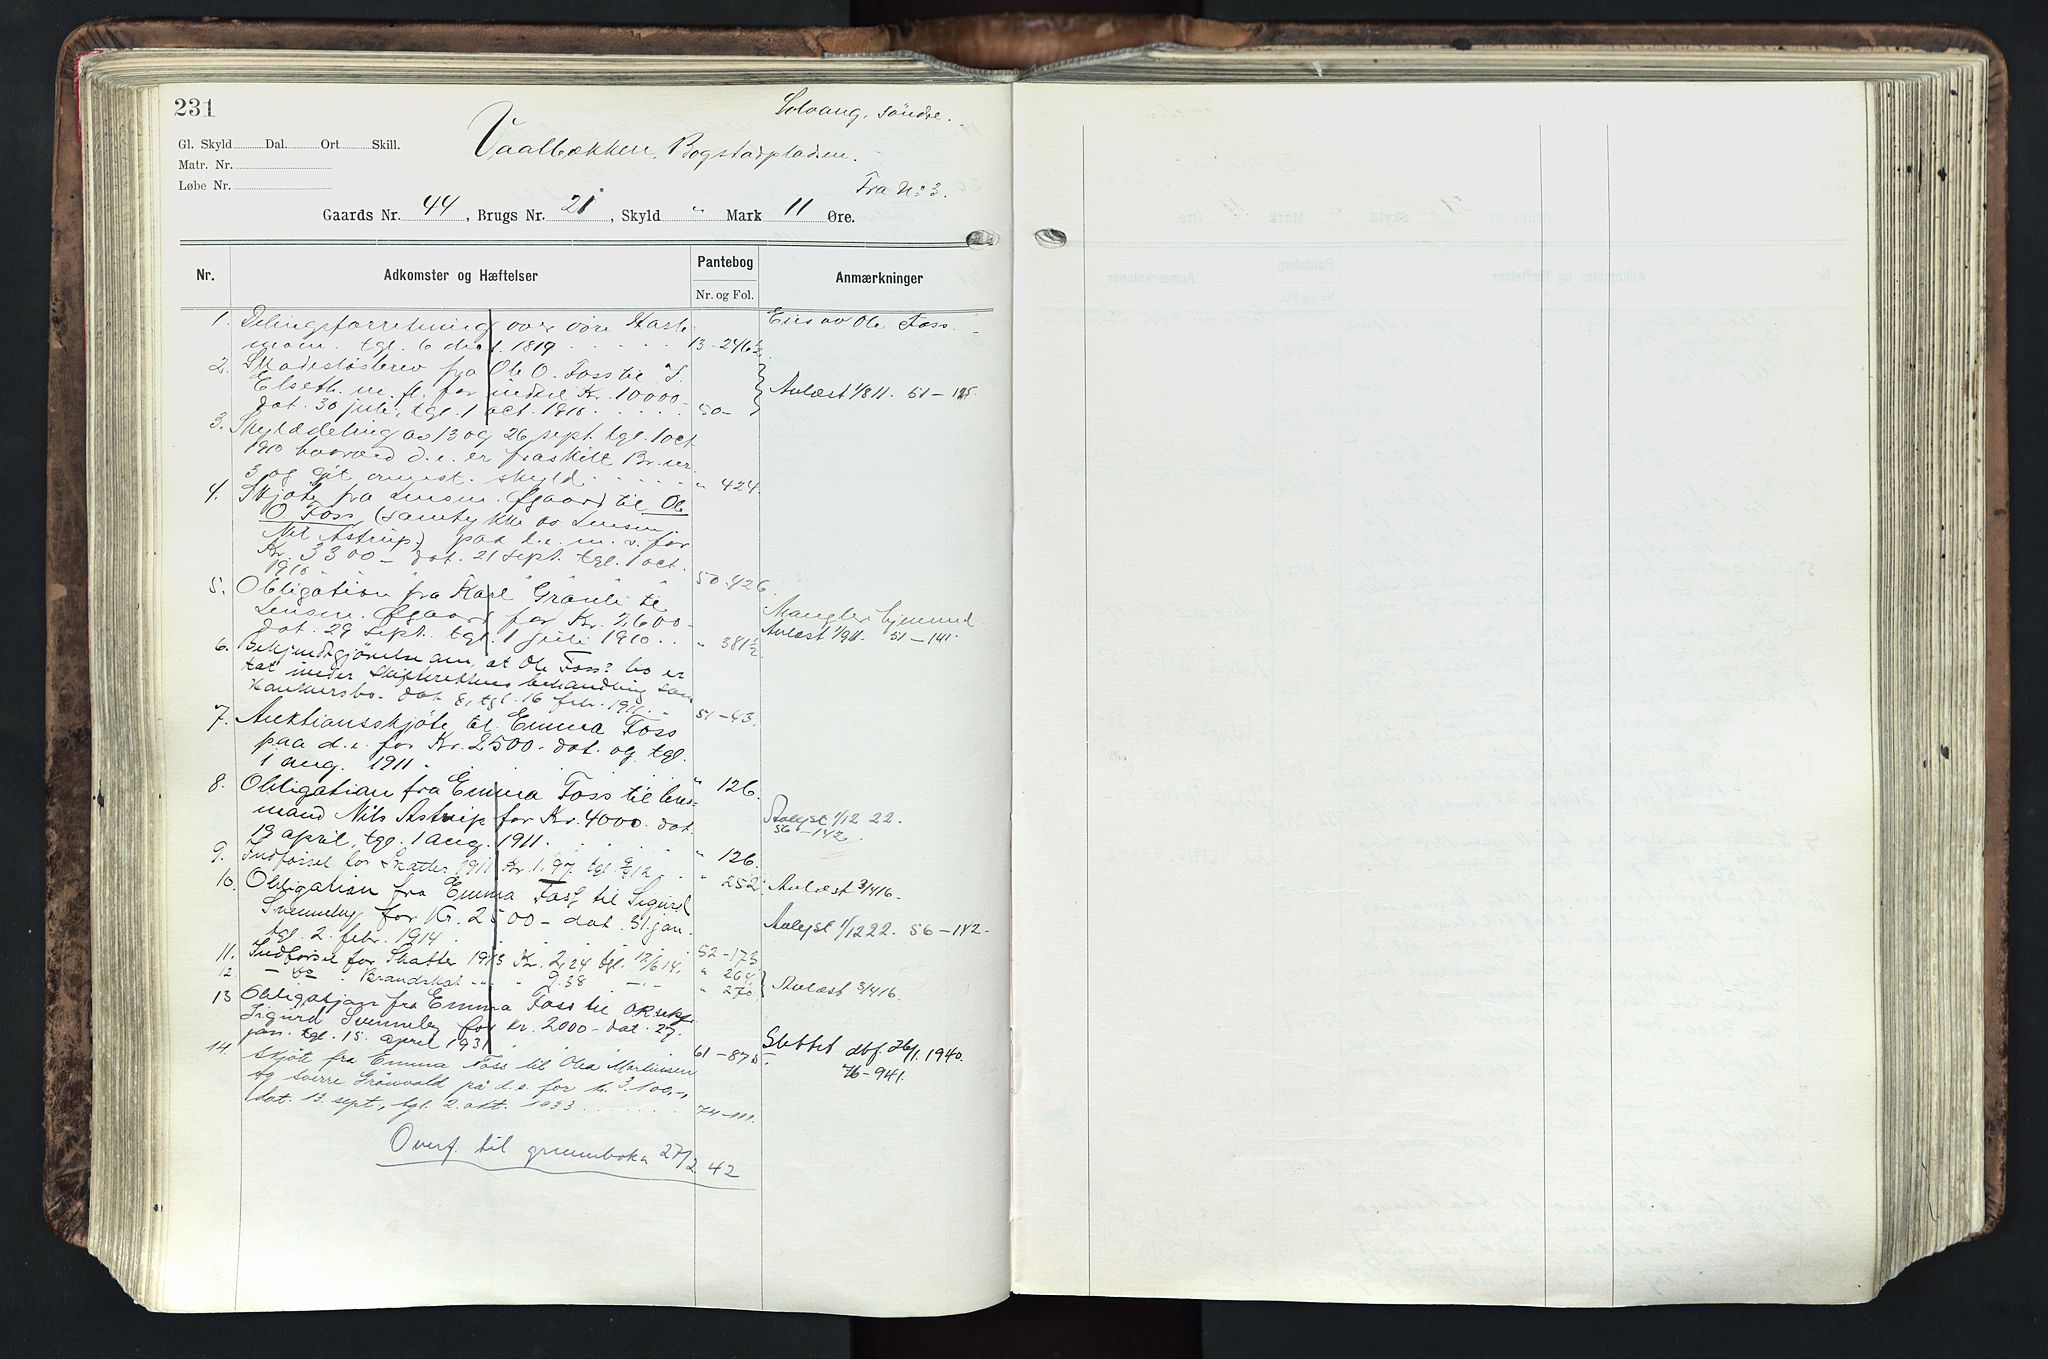 231
Solvang, søndre.
Gl. Skyld Dal. Ort Skill.
Vaalbækken, Bogstadpladsen.
Matr. Nr.
Løbe Nr.
Fra No 3.
Gaards Nr. 44, Brugs Nr. 21, Skyld " Mark 11 Øre.
Nr. Adkomster og Hæftelser Pantebog Anmærkninger
Nr. og Fol.
1. Delingsforretning over øvre
tgl. 6 1819 13-246½ Eies av Ole Foss.
2. Skadesløsbrev fra Ole O. Foss til S.
Elseth m. fl. for indtil Kr. 10000-
dat. 30 juli, tgl. 1 oct. 1910. 50- Avlæst 1/8 11. 51-125
3. Skylddeling av 13 og 26 sept. tgl. 1 oct.
1910 hvorved d. e. er fraskilt Br. nr.
3 og git angest. skyld. " 424.
4. Skjøte fra Lensm. Øgaard til Ole
O Foss (samtykke av Lensm.
Nil Astrup) paa d. e. m. v. for
Kr. 3300- dat. 21 sept. tgl. 1 oct.
1910 50-426.
5. Obligation fra Karl Grønli til
Lensm. Øgaard for Kr. 2600-
dat. 29 sept. tgl. 1 juli 1910. " 381½ Mangler hjemmel
Avlæst 1/9 11. 51-141.
6. Bekjendtgjørelse om, at Ole Foss' bo er
tat under Skifterettens behandling som
konkursbo. dat. 8, tgl. 16 febr. 1911. 51-43.
7. Auktionsskjøte til Emma Foss
paa d. e. for Kr. 2500- dat. og tgl.
1 aug. 1911. " 126.
8. Obligation fra Emma Foss til lens-
mand Nils Astrup for Kr. 4000. dat.
13 april, tgl. 1 aug. 1911. " 126. Avlyst 1/12 22.
56-142.
9. Indførsel for Skatter 1911 Kr. 1.97. tgl. 9/2 12. " 252. Avlæst 3/4 16.
10. Obligation fra Emma Foss til Sigurd
Svenneby for Kr. 2500- dat. 31. jan.
tgl. 2. febr. 1914. 52-173 Avlyst 1/12 22. 56-142.
11. Indførsel for Skatter 1913 Kr. 2,24 tgl. 12/6 14. " 264.
12. - do " Brandskat " " " 9.38 - " - " 270 Avlæst 3/4 16.
13 Obligasjon fra Emma Foss til
Sigurd Svenneby for Kr. 2000- dat. 27.
jan. tgl. 15. april 1931 61-875 Slettet dbf. 26/1. 1940.
76-941.
14. Skjøte fra Emma Foss til Olea Martinsen
og Sverre Grønvold på d. e. for kr. 3.100,-,
dat. 13. sept., tgl. 2. okt. 1933. 74-111.
Overf. til grunnboka 27/2 42